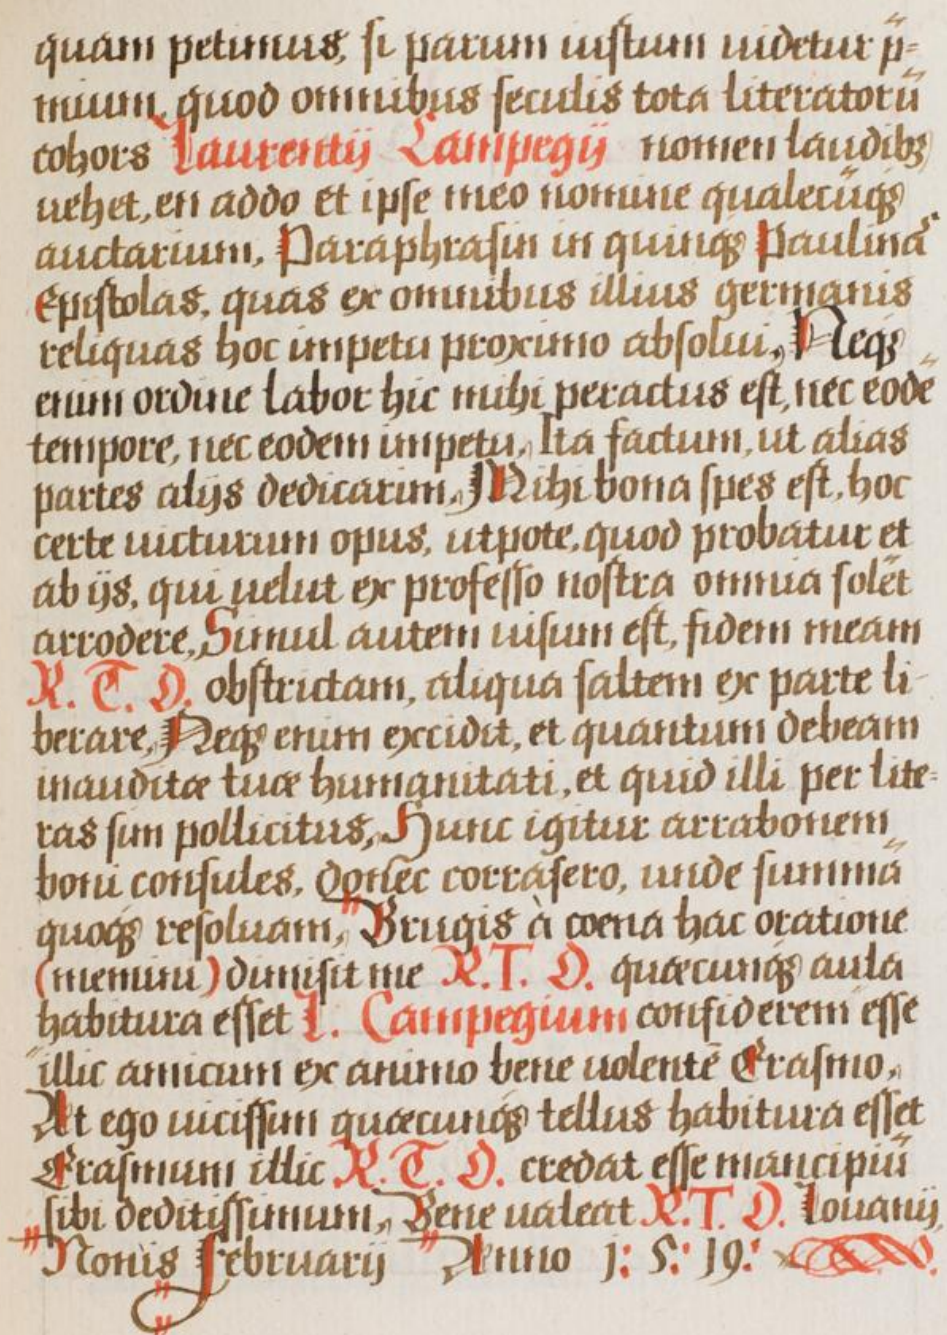 quam petimus, si parum iustum uidetur p̃=
mium, quod omnibus seculis tota literatorũ
cohors Laurentij Campegij nomen laudibꝫ
uehet, en addo et ipse meo nomine qualecũqꝫ
auctarium, Paraphrasin in quinqꝫ Paulinas
Epistolas, quas ex omnibus illius germanis
reliquas hoc impetu proximo absolui, Neqꝫ
enim ordine labor hic mihi peractus est, nec eodẽ
tempore, nec eodem impetu, Ita factum, ut alias
partes alijs dedicarim, Mihi bona spes est, hoc
certe uicturum opus, utpote, quod probatur et
ab ijs, qui uelut ex professo nostra omnia solẽt
arrodere, Simul autem uisum est, fidem meam
R. T. D. obstrictam, aliqua saltem ex parte li-
berare, Neqꝫ enim excidit, et quantum debeam
inauditæ tuæ humanitati, et quid illi per lite=
ras sim pollicitus, Hunc igitur arrabonem
boni consules, donec corrasero, unde summã
quoqꝫ resoluam, Brugis à coena hac oratione
(memini) dimisit me R. T. D. quæcunqꝫ aula
habitura esset L. Campegium confiderem esse
illic amicum ex animo bene uolentẽ Erasmo,
At ego uicissim quæcunqꝫ tellus habitura esset
Erasmum illic R. T. D. credat esse mancipiũ
sibi deditissimum, Bene ualeat R. T. D. Louanij
Nonis Februarij Anno 1: 5: 19: